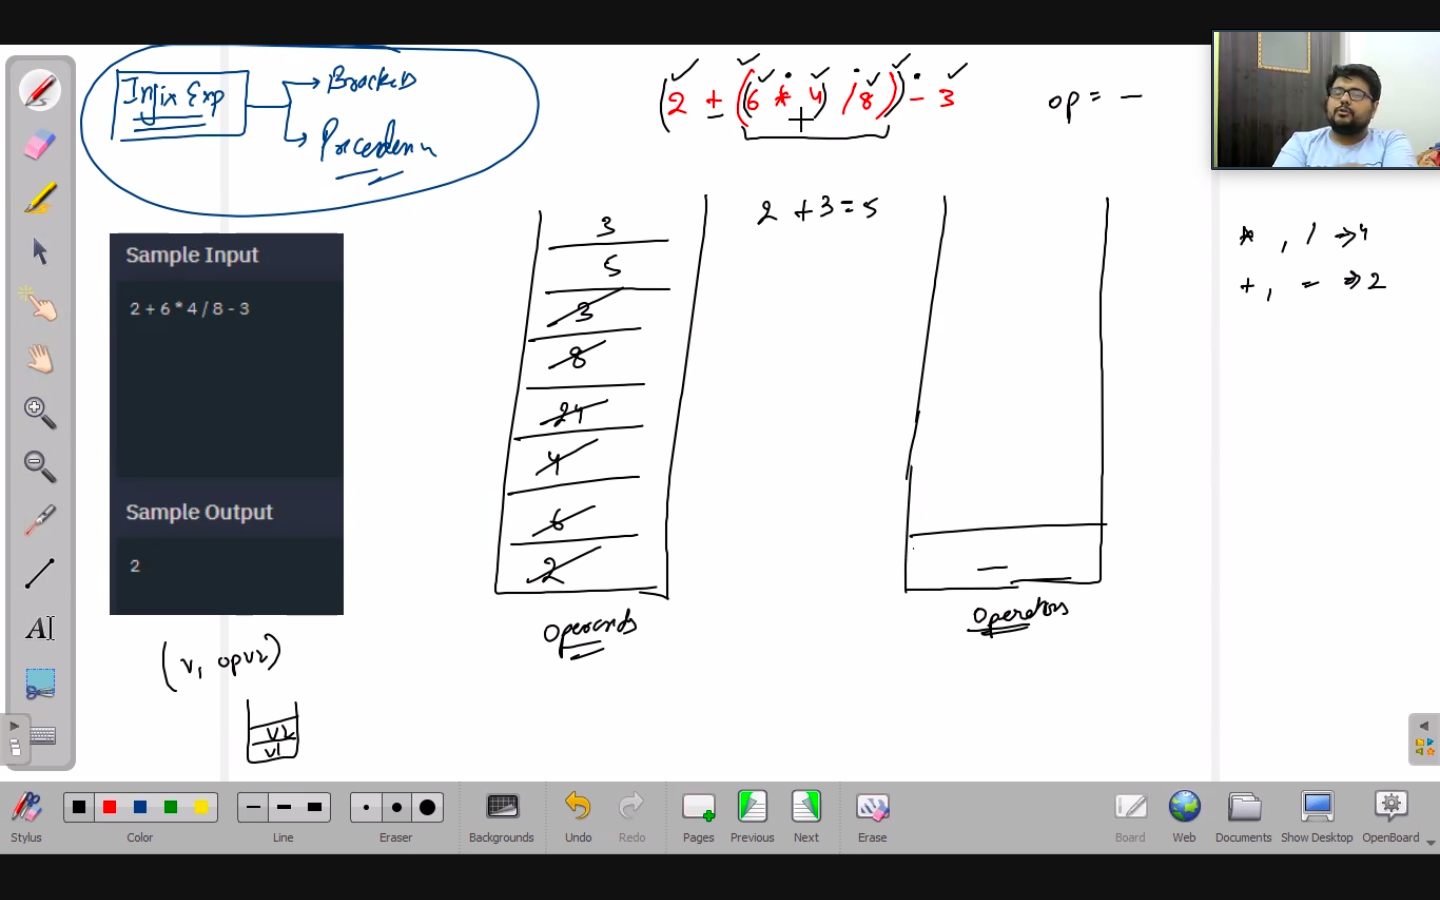 Infix Exp
Brackets
Precedenc
(2 + ((6 * 4) / 8)) - 3
op = -
2 + 3 = 5
* , / => 4
+ , - => 2
Sample Input
2 + 6 * 4 / 8 - 3
Sample Output
2
3
5
3
8
24
4
6
2
Operands
-
Operators
(v1 op v2)
v2
v1
Stylus
Color
Line
Eraser
Backgrounds
Undo
Redo
Pages
Previous
Next
Erase
Board
Web
Documents
Show Desktop
OpenBoard